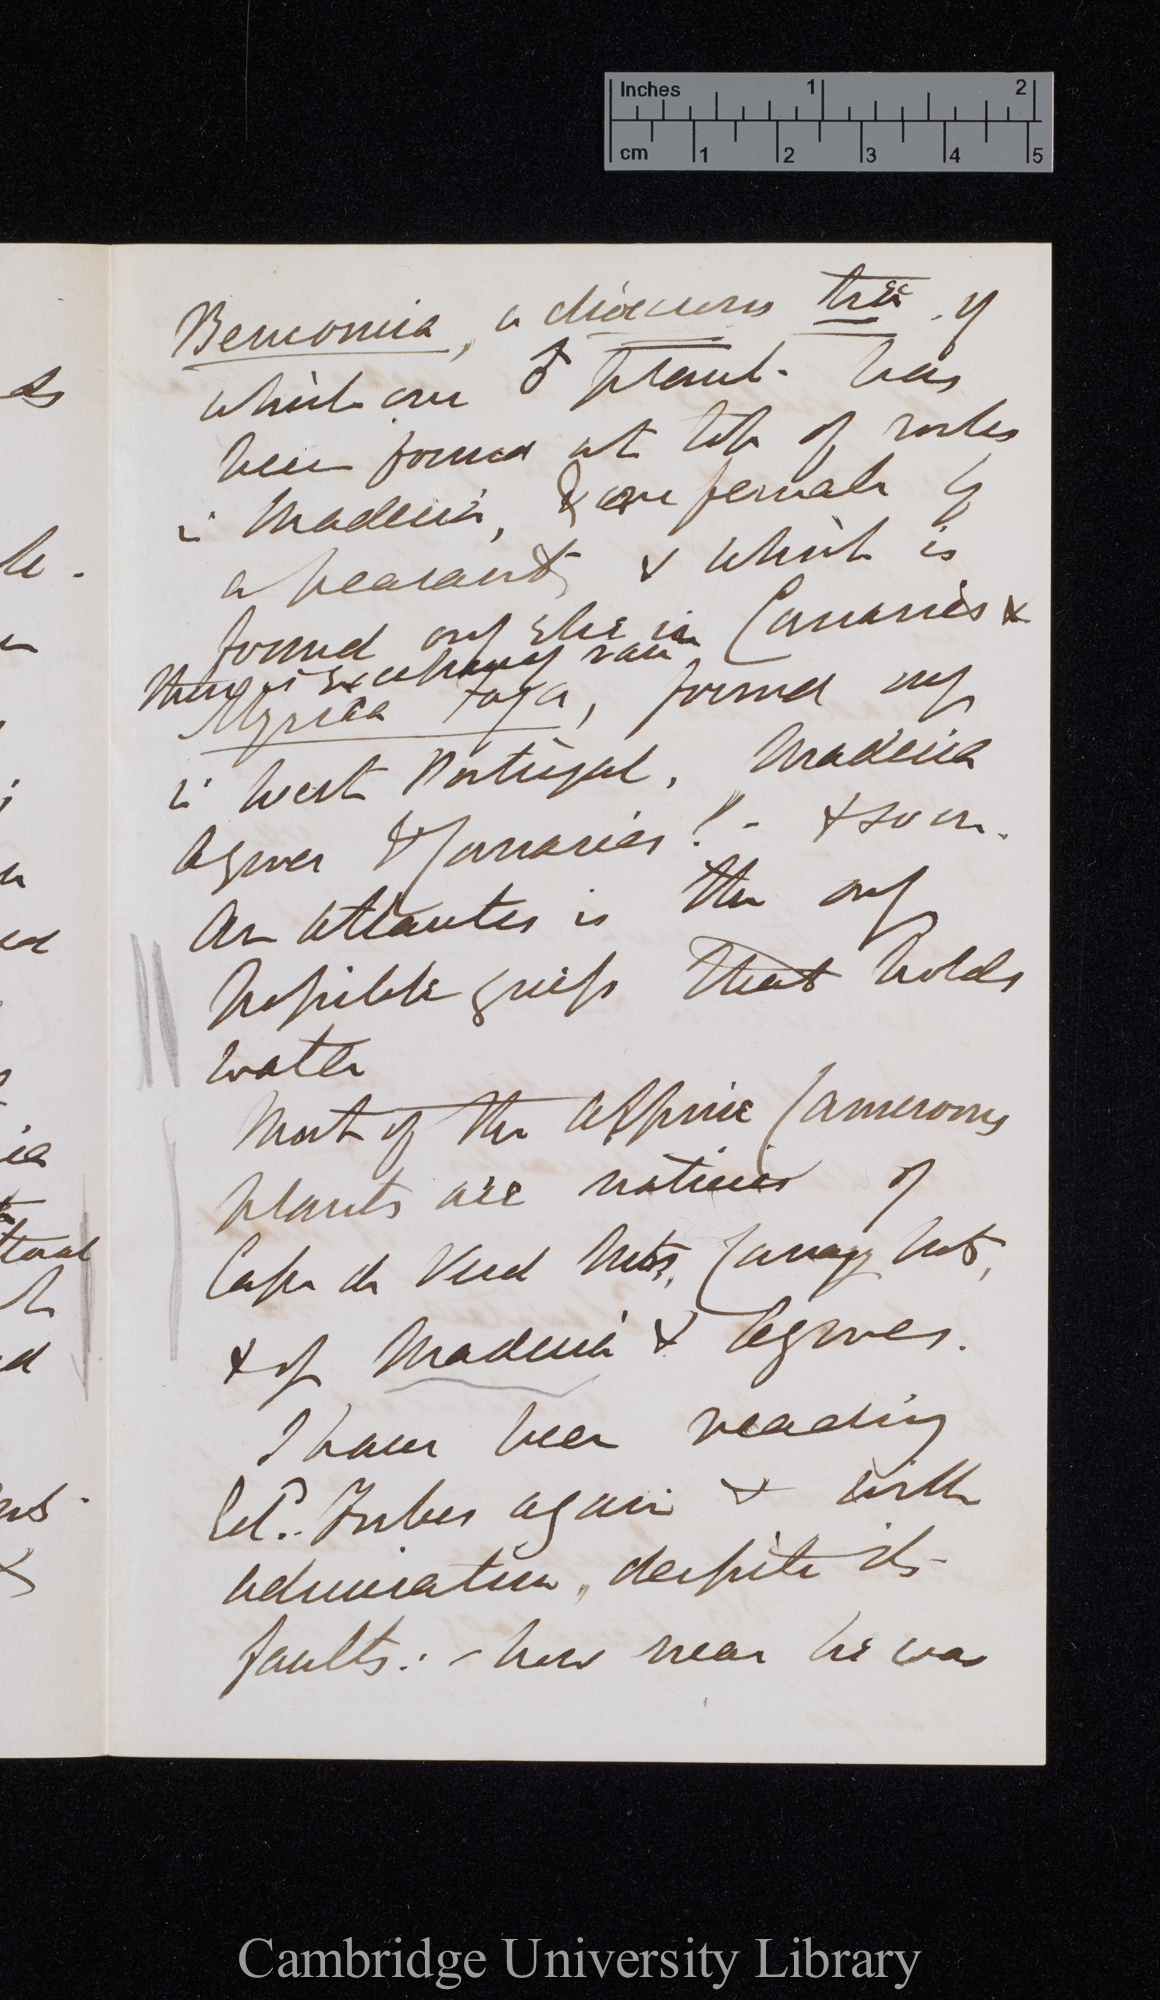 Inches 1 2
cm 1 2 3 4 5
Bencomia, a dioecious tree. of
which one ♂ plant has
been found at top of rocks
in Madeira, & one female by
a peasant & which is
found only else in Canaries &
there is exceedingly rare
Myrica Faya, found only
in West Portugal, Madeira
Azores & Canaries!!— & so on.
An Atlantis is the only
possible guess that holds
water
Most of the Alpine Cameroons
plants are natives of
Cape de Verd Mts, Canary Mts,
& of Madeira & Azores.
I have been reading
Ed. Forbes again & with
admiration, despite its
faults:— how near he was
ds
le.
ia
ttoral
d
Cambridge University Library